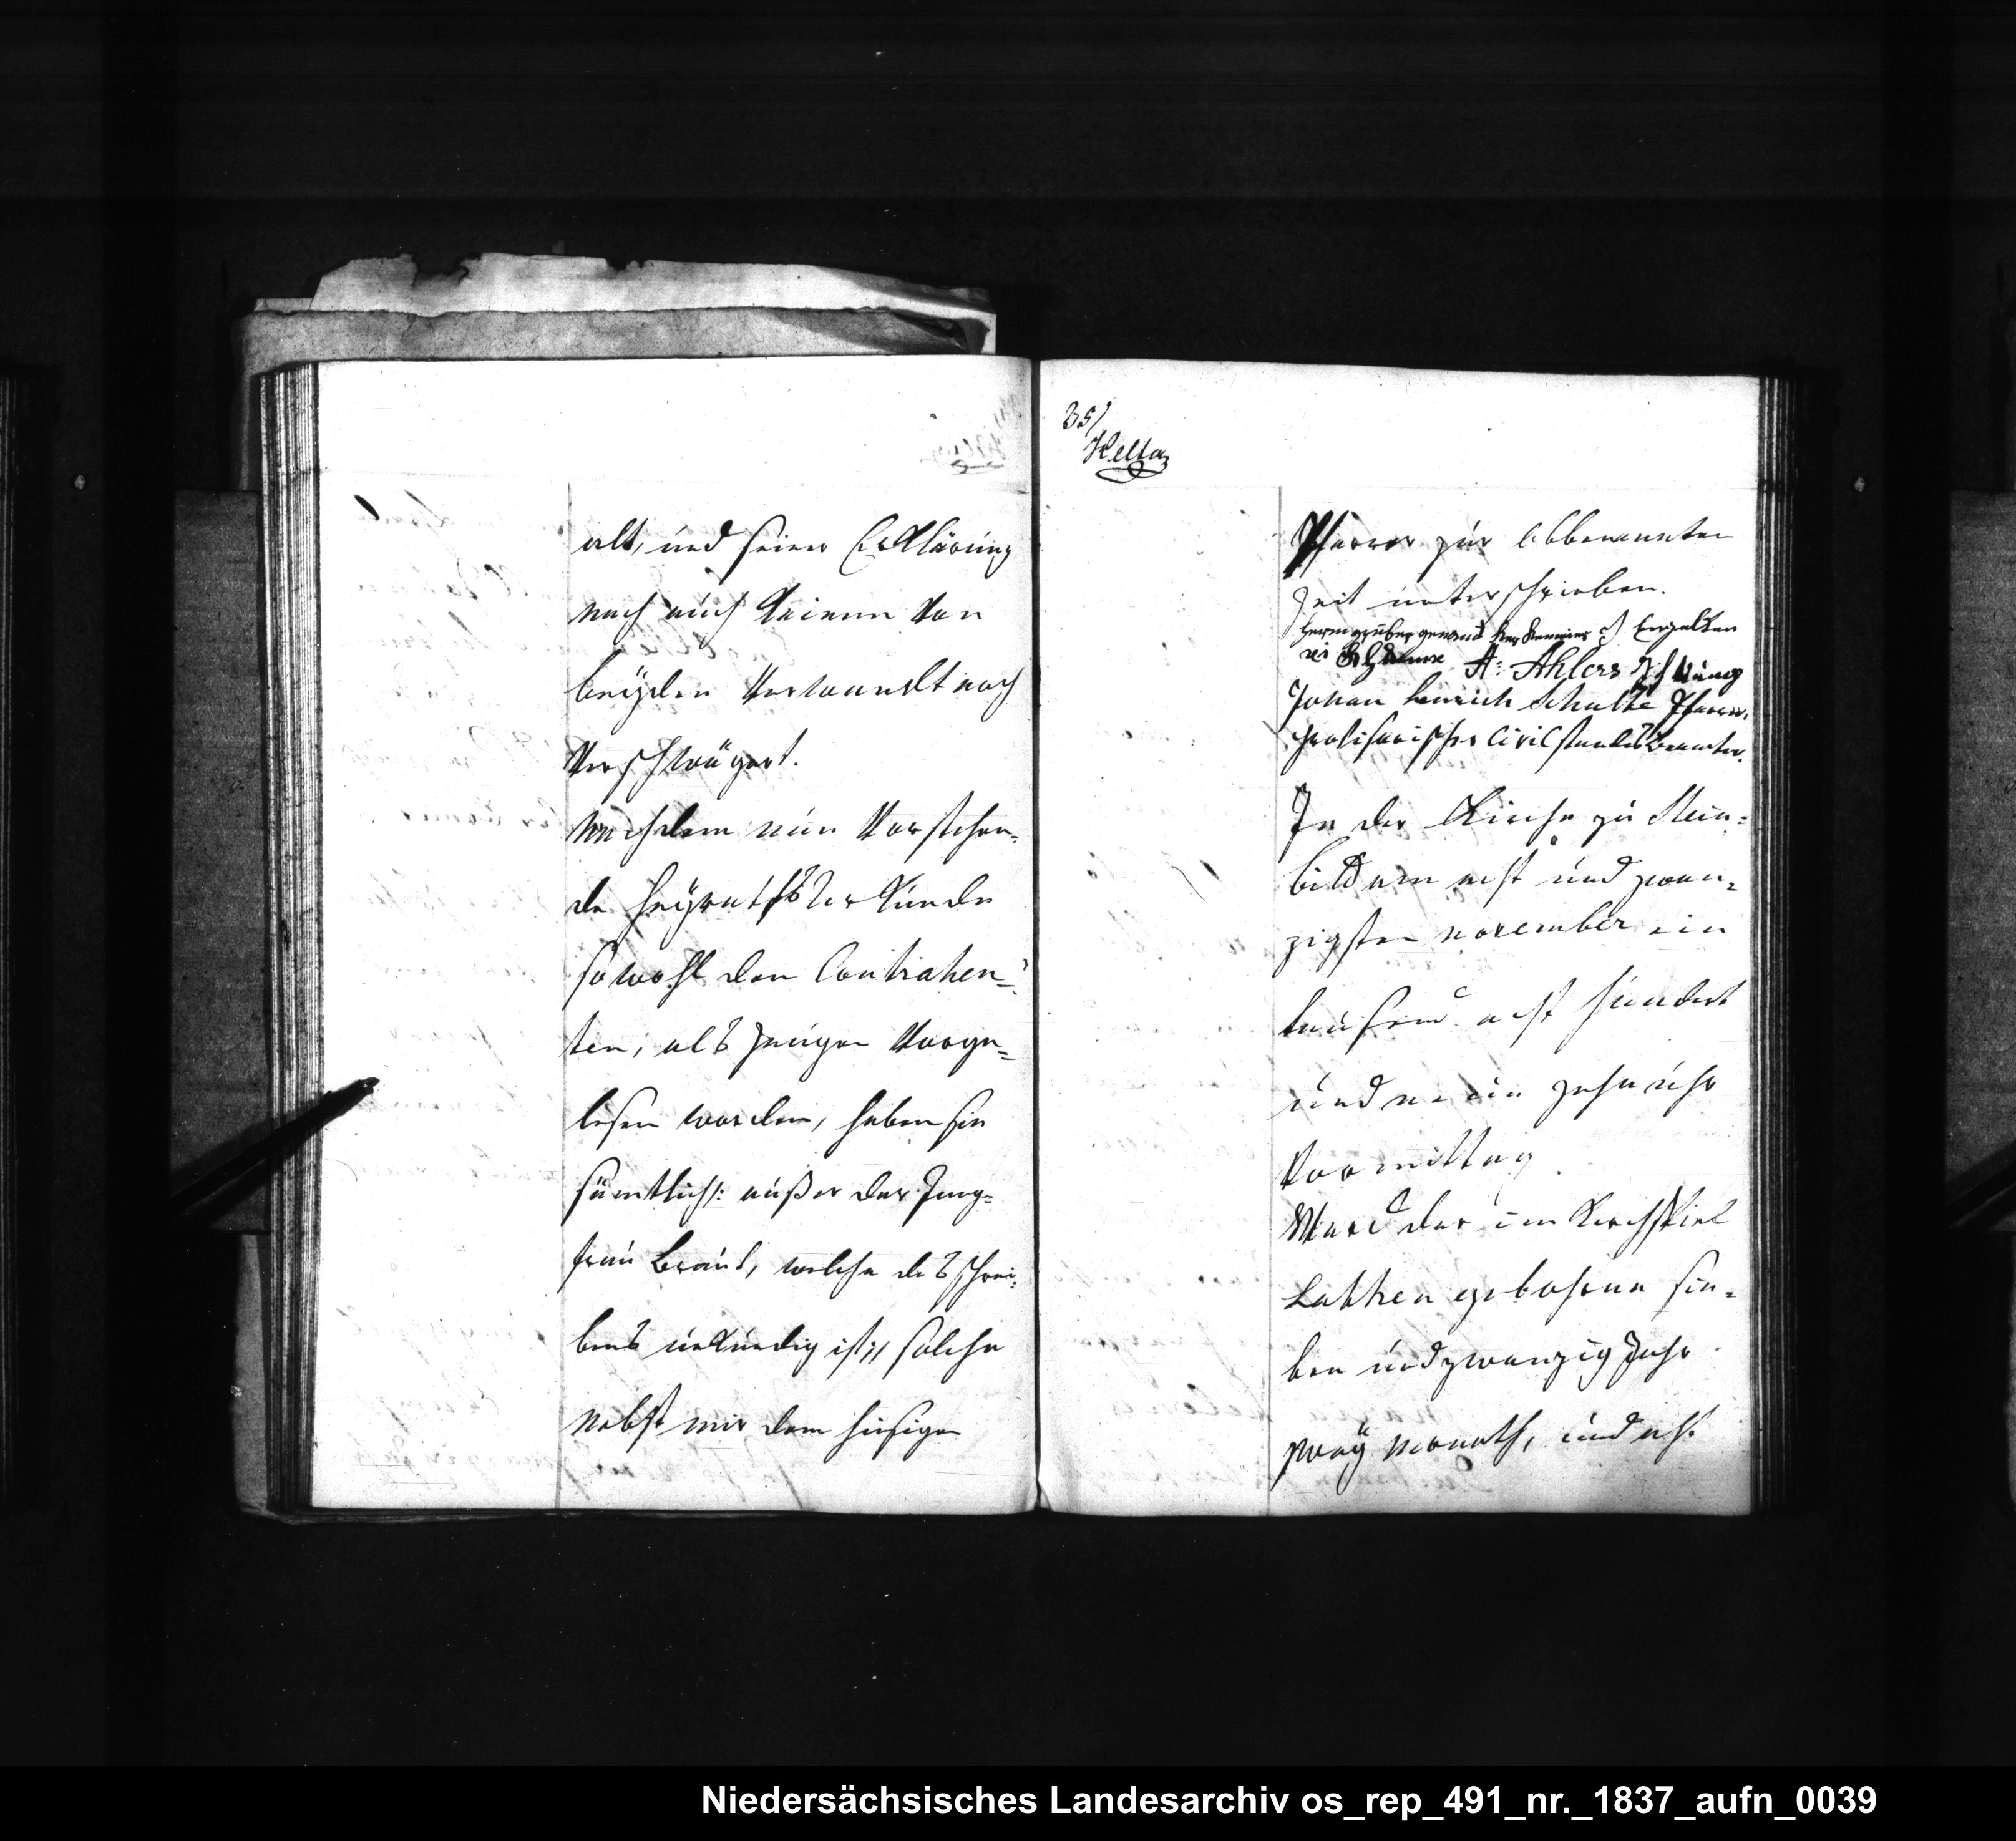 alt, und seiner Erklärung
nach auch keinem von
beÿden verwandt noch
verschwägert.
Nachdem nun vorstehen=
de Heÿraths Urkunde
sowohl den Contrahen=
ten, als Zeugen vorge=
lesen worden, haben sie
sämtlich /: außer der Jung=
frau Braut, welche des Schrei=
bens unkundig ist :/ solche
nebst mir dem hiesigen
35/
Helta
Pfarrer zur obbenannten
Zeit unterschrieben.
genand Engelken
A: Ahlers
Johan henrich Schulte Pfarrer,
provisorischer Civilstandes Beamter.
In der Kirche zu Stein=
bild am acht und zwan=
zigsten november ein
tausend acht hundert
und neun zehn uhr
Vormittag.
Ward der im Kirchspiel
Lathen gebohrne sie=
ben und zwanzig Jahr
zweÿ monath, und acht
Niedersächsisches Landesarchiv os_rep_491_nr._1837_aufn_0039